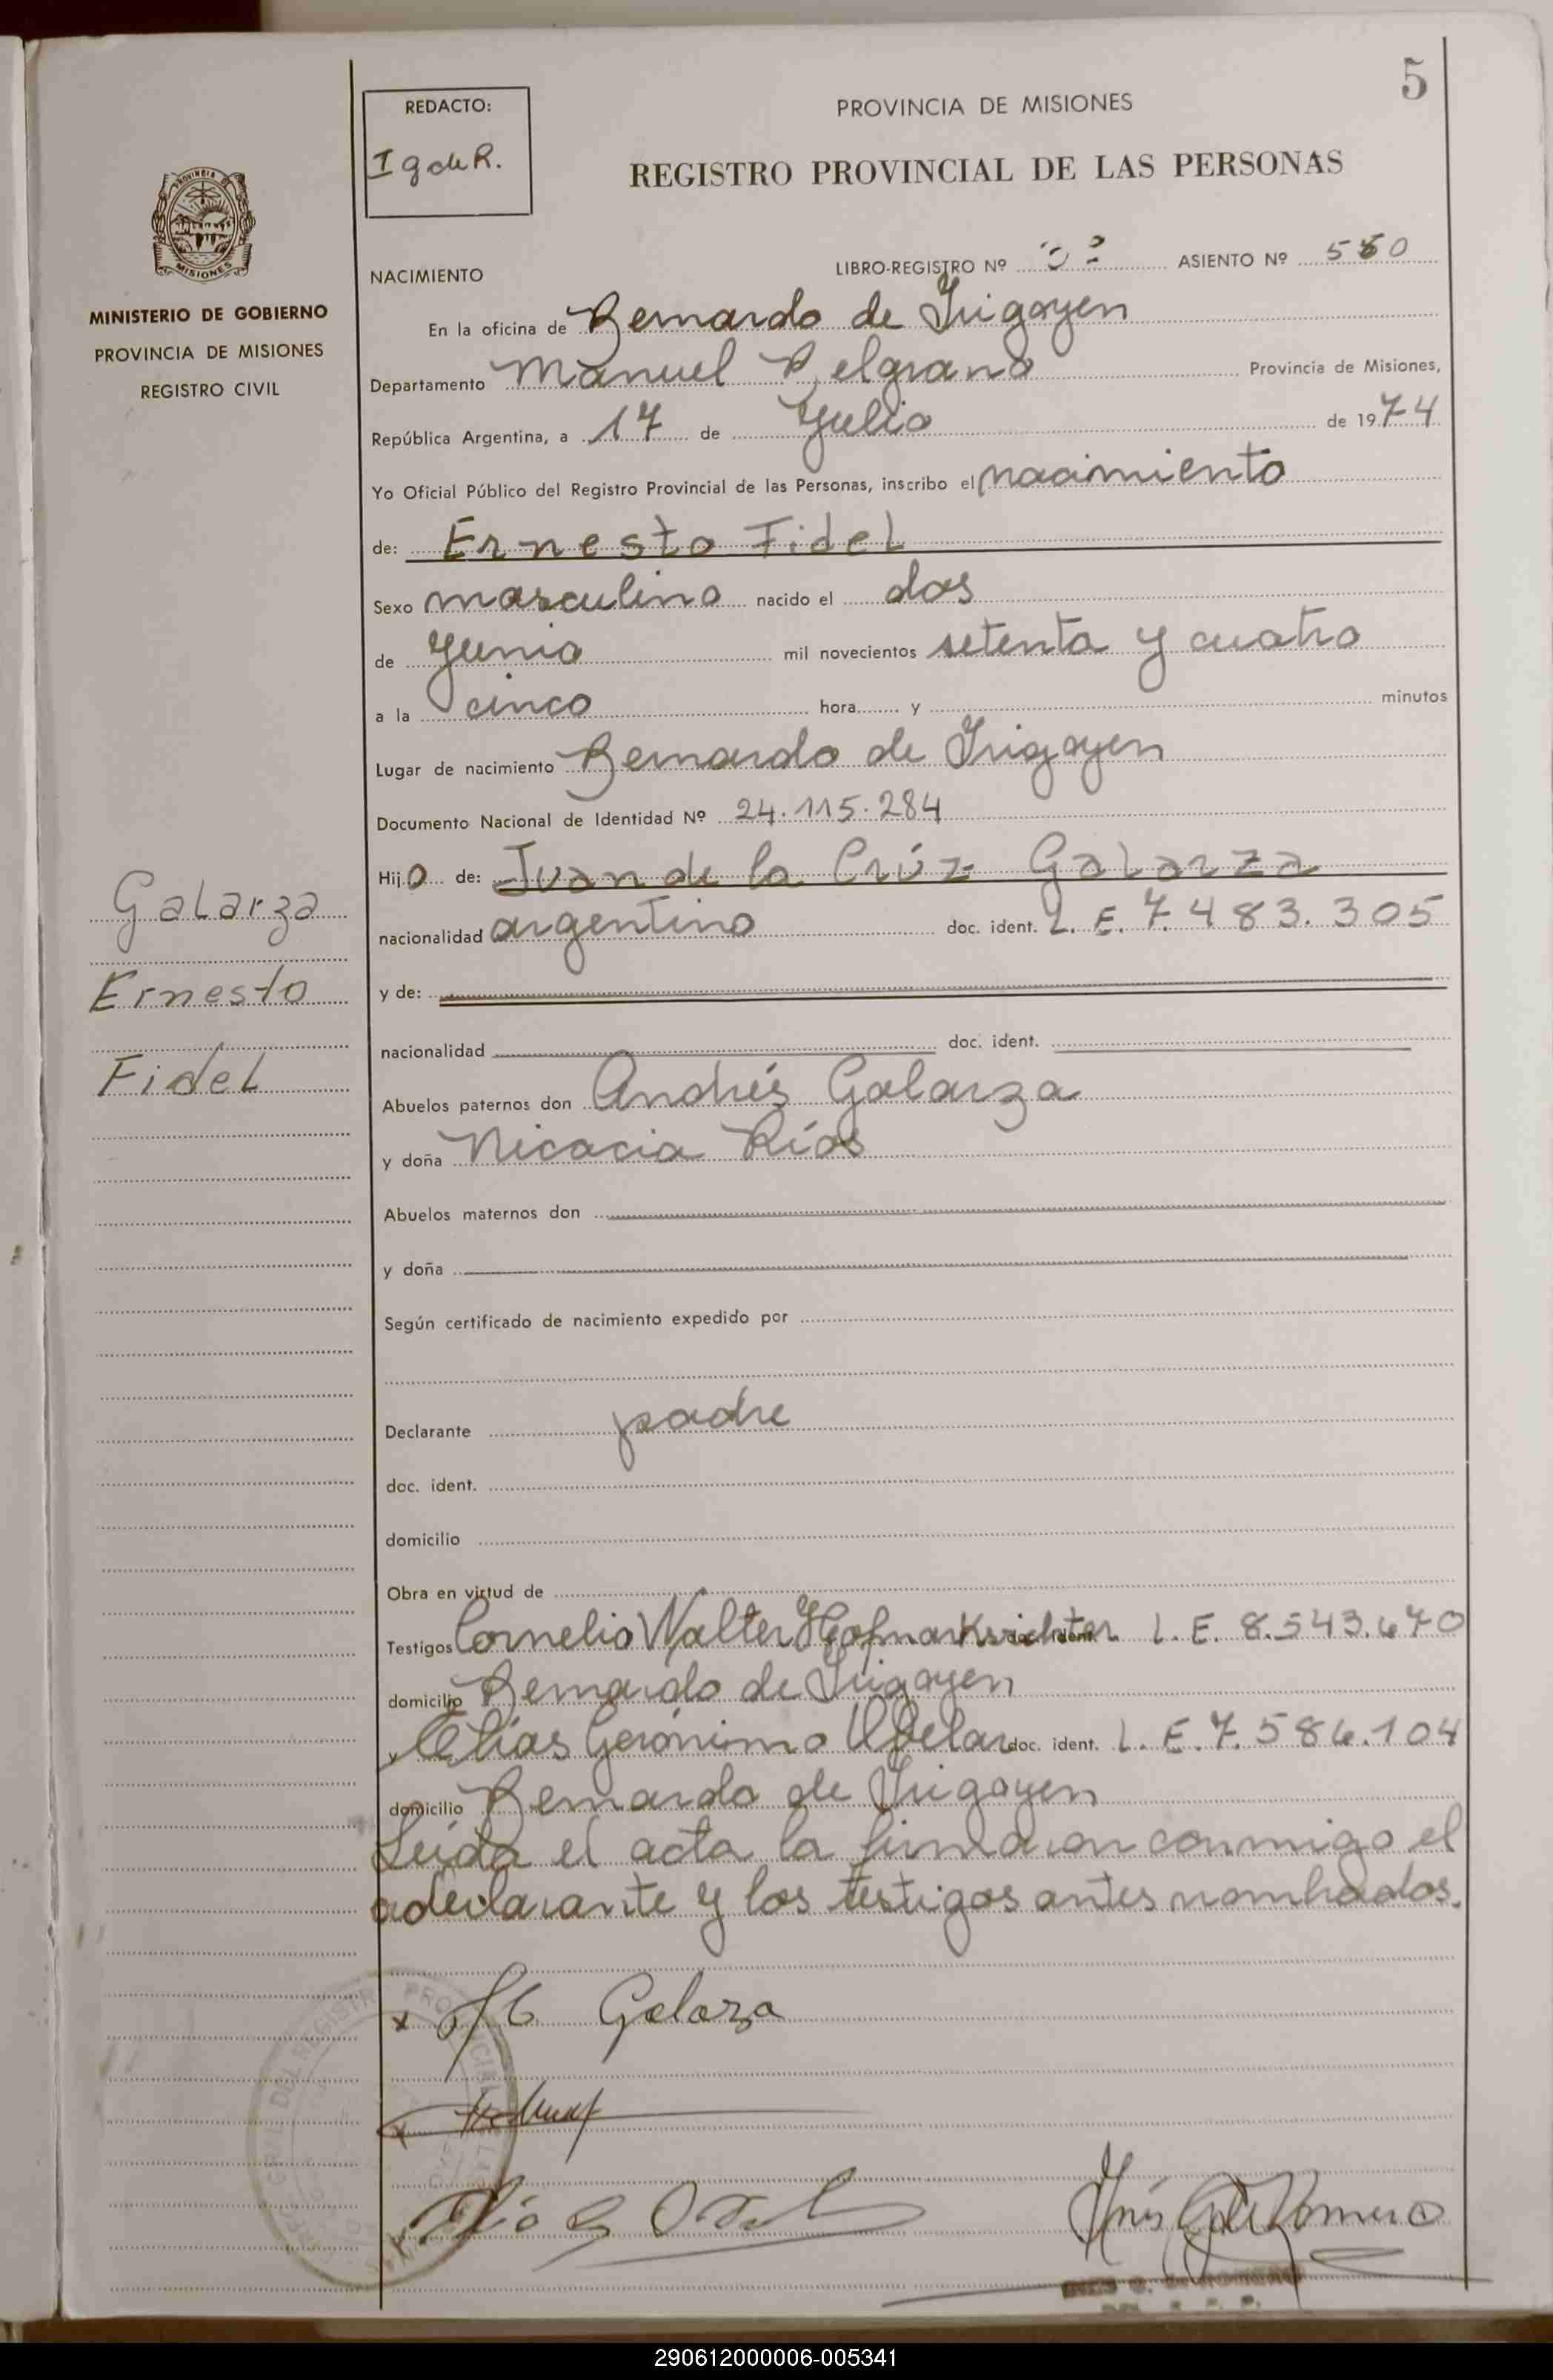 5
REDACTO:
I g de R.
PROVINCIA DE MISIONES
REGISTRO PROVINCIAL DE LAS PERSONAS
PROVINCIA DE
MISIONES
MINISTERIO DE GOBIERNO
PROVINCIA DE MISIONES
REGISTRO CIVIL
NACIMIENTO
LIBRO-REGISTRO Nº ASIENTO Nº 550
En la oficina de Bernardo de Irigoyen
Departamento Manuel Belgrano Provincia de Misiones,
República Argentina, a 17 de Julio de 1974
Yo Oficial Público del Registro Provincial de las Personas, inscribo el nacimiento
de: Ernesto Fidel
Sexo masculino nacido el dos
de Junio mil novecientos setenta y cuatro
a la cinco hora y minutos
Lugar de nacimiento Bernardo de Irigoyen
Documento Nacional de Identidad Nº 24.115.284
Hijo de: Juan de la Crúz Galarza
nacionalidad argentino doc. ident. L. E. 7.483.305
y de:
nacionalidad doc. ident.
Galarza
Ernesto
Fidel
Abuelos paternos don Andrés Galarza
y doña Nicacia Ríos
Abuelos maternos don
y doña
Según certificado de nacimiento expedido por
Declarante padre
doc. ident.
domicilio
Obra en virtud de
Testigos Cornelio Walter L. E. 8.543.670
domicilio Bernardo de Irigoyen
y Elías Gerónimo doc. ident. L. E. 7.586.104
domicilio Bernardo de Irigoyen
Leída el acta la firmaron conmigo el
declarante y los testigos antes nombrados.
x Galarza
Inés G de Romero
290612000006-005341